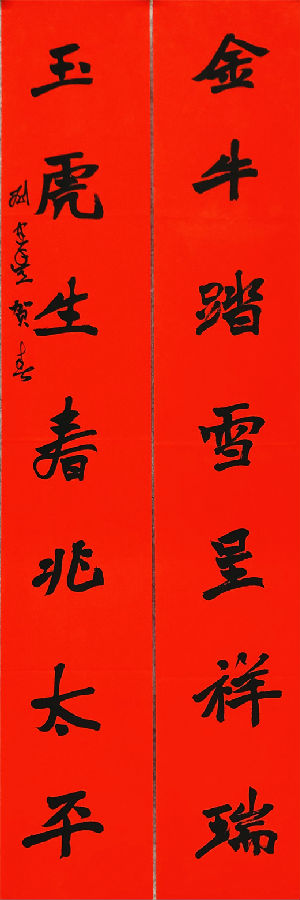 金牛踏雪呈祥瑞
玉虎生春兆太平
贺春